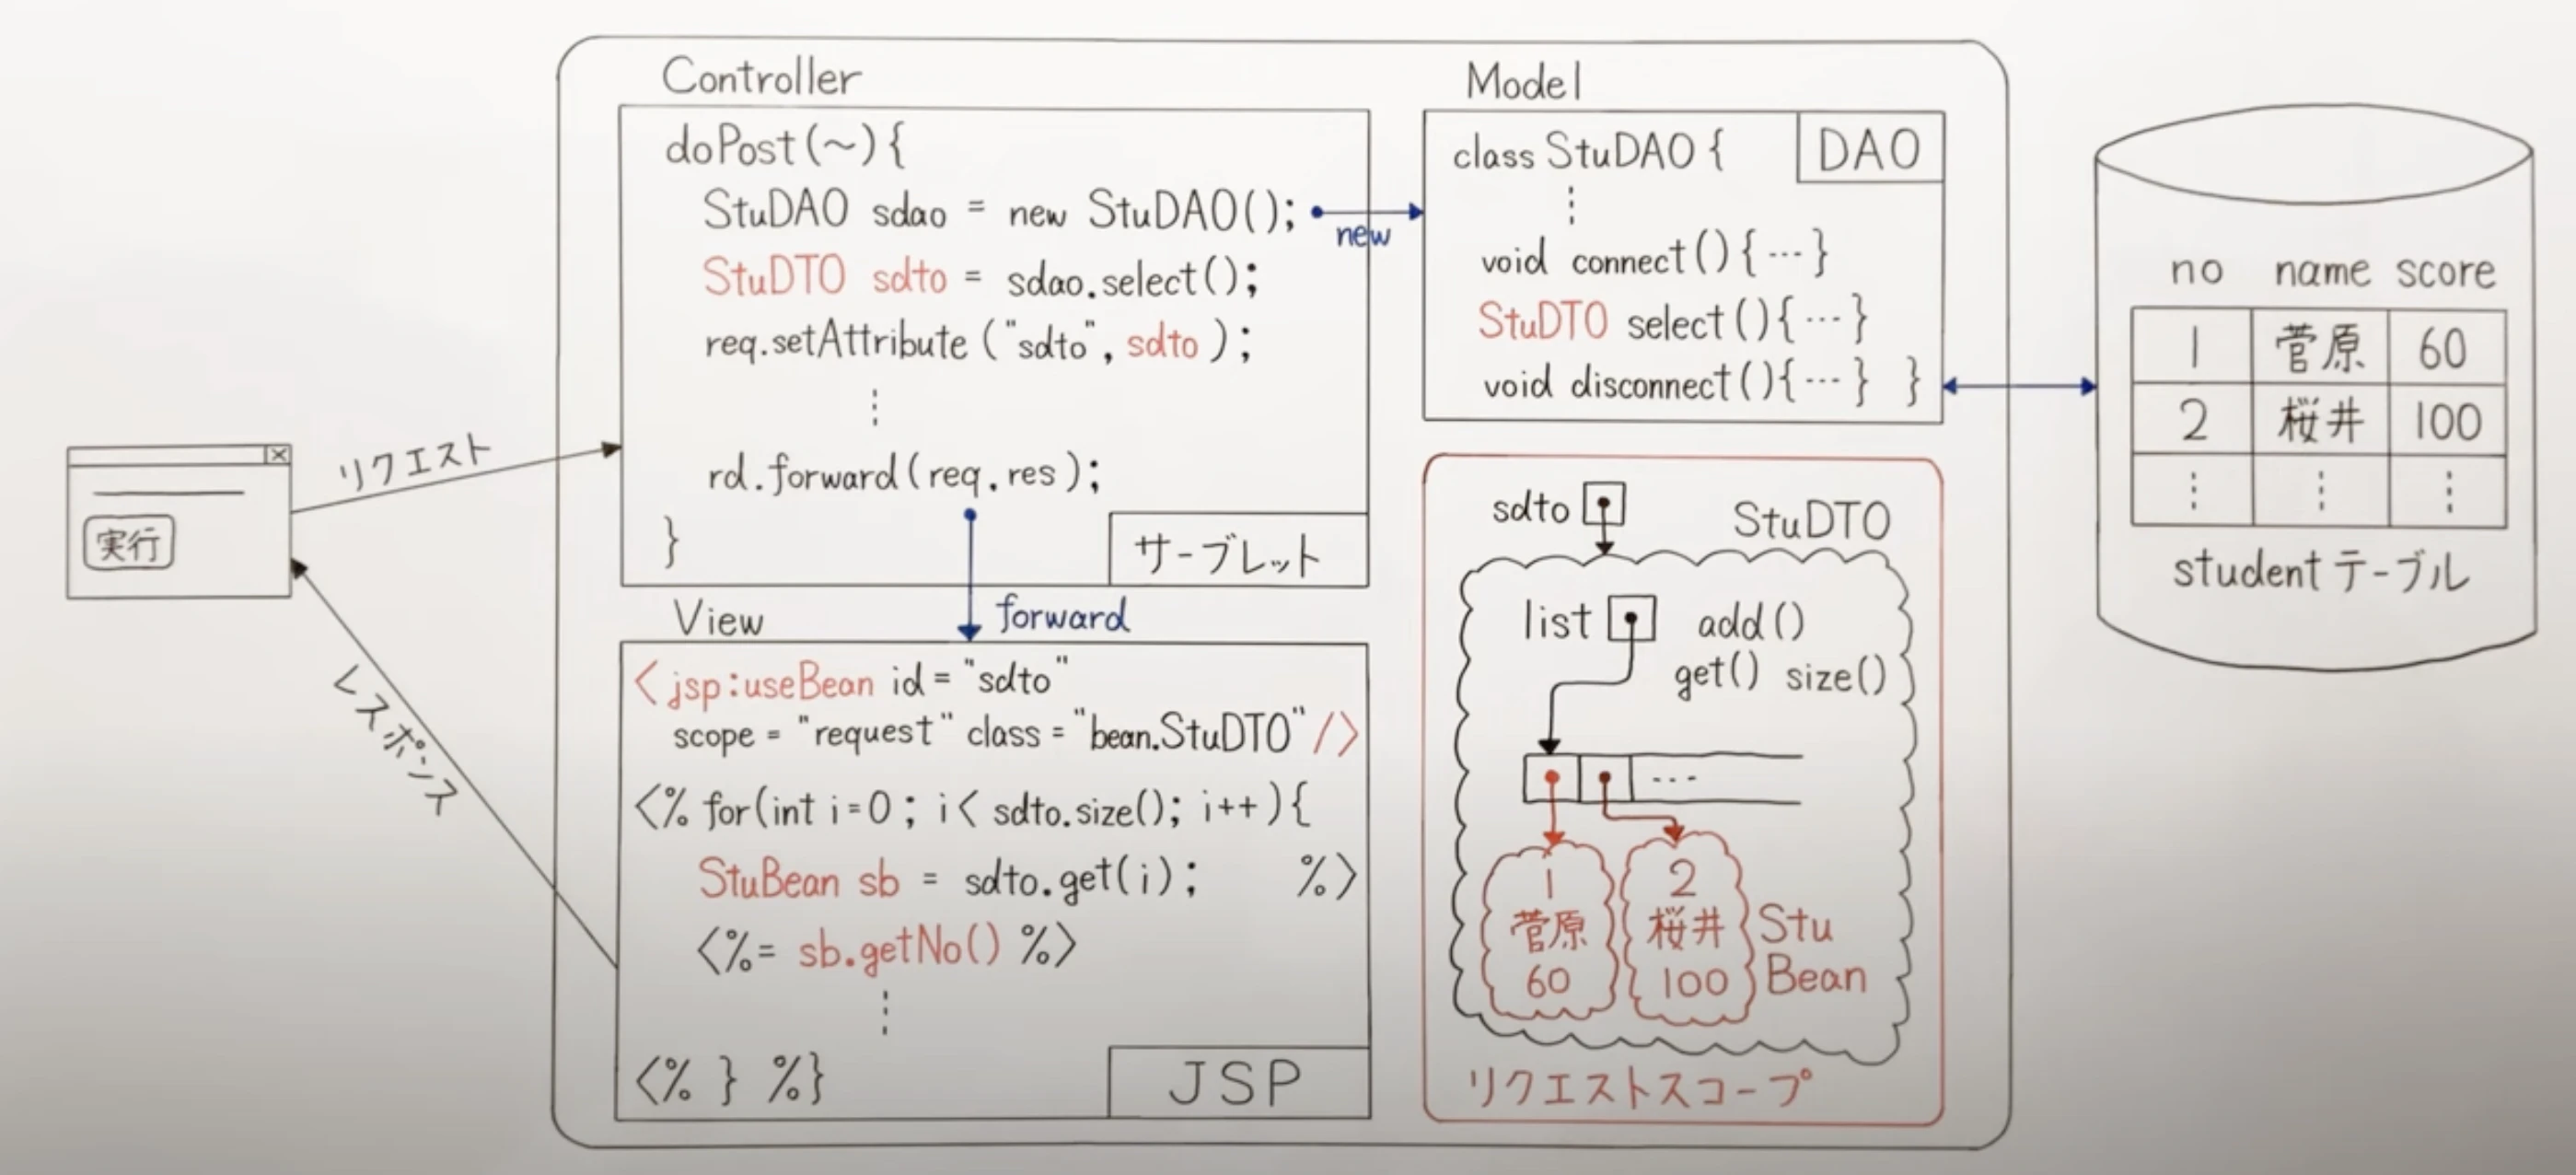 Controller
doPost(～){
StuDAO sdao = new StuDAO();
StuDTO sdto = sdao.select();
req.setAttribute("sdto", sdto);
⋮
rd.forward(req.res);
}
サーブレット
new
Model
class StuDAO {
DAO
⋮
void connect(){…}
StuDTO select(){…}
void disconnect(){…} }
no name score
1 菅原 60
2 桜井 100
⋮ ⋮ ⋮
studentテーブル
リクエスト
実行
レスポンス
forward
View
<jsp:useBean id="sdto"
scope="request" class="bean.StuDTO"/>
<% for(int i=0; i< sdto.size(); i++){
StuBean sb = sdto.get(i); %>
<%= sb.getNo() %>
⋮
<% } %}
JSP
sdto
StuDTO
list
add()
get() size()
…
1
菅原
60
2
桜井
100
Stu
Bean
リクエストスコープ